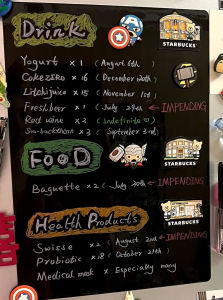 Drink
STARBUCKS
Yogurt × 1 (August 6th)
Coke zero × 16 (December 20th)
Litchi juice × 15 (November 1st)
Fresh beer × 1 (July 29th) ← IMPENDING
Red wine × 2 (Indefinite)
Sea-buckthorn × 3 (September 3rd)
FOOD
STARBUCKS
Baguette × 2 (July 30th) ← IMPENDING
Health Products
STARBUCKS
Swisse × 2 (August 2nd) ← IMPENDING
Probiotic × 18 (October 27th)
Medical mask × Especially many